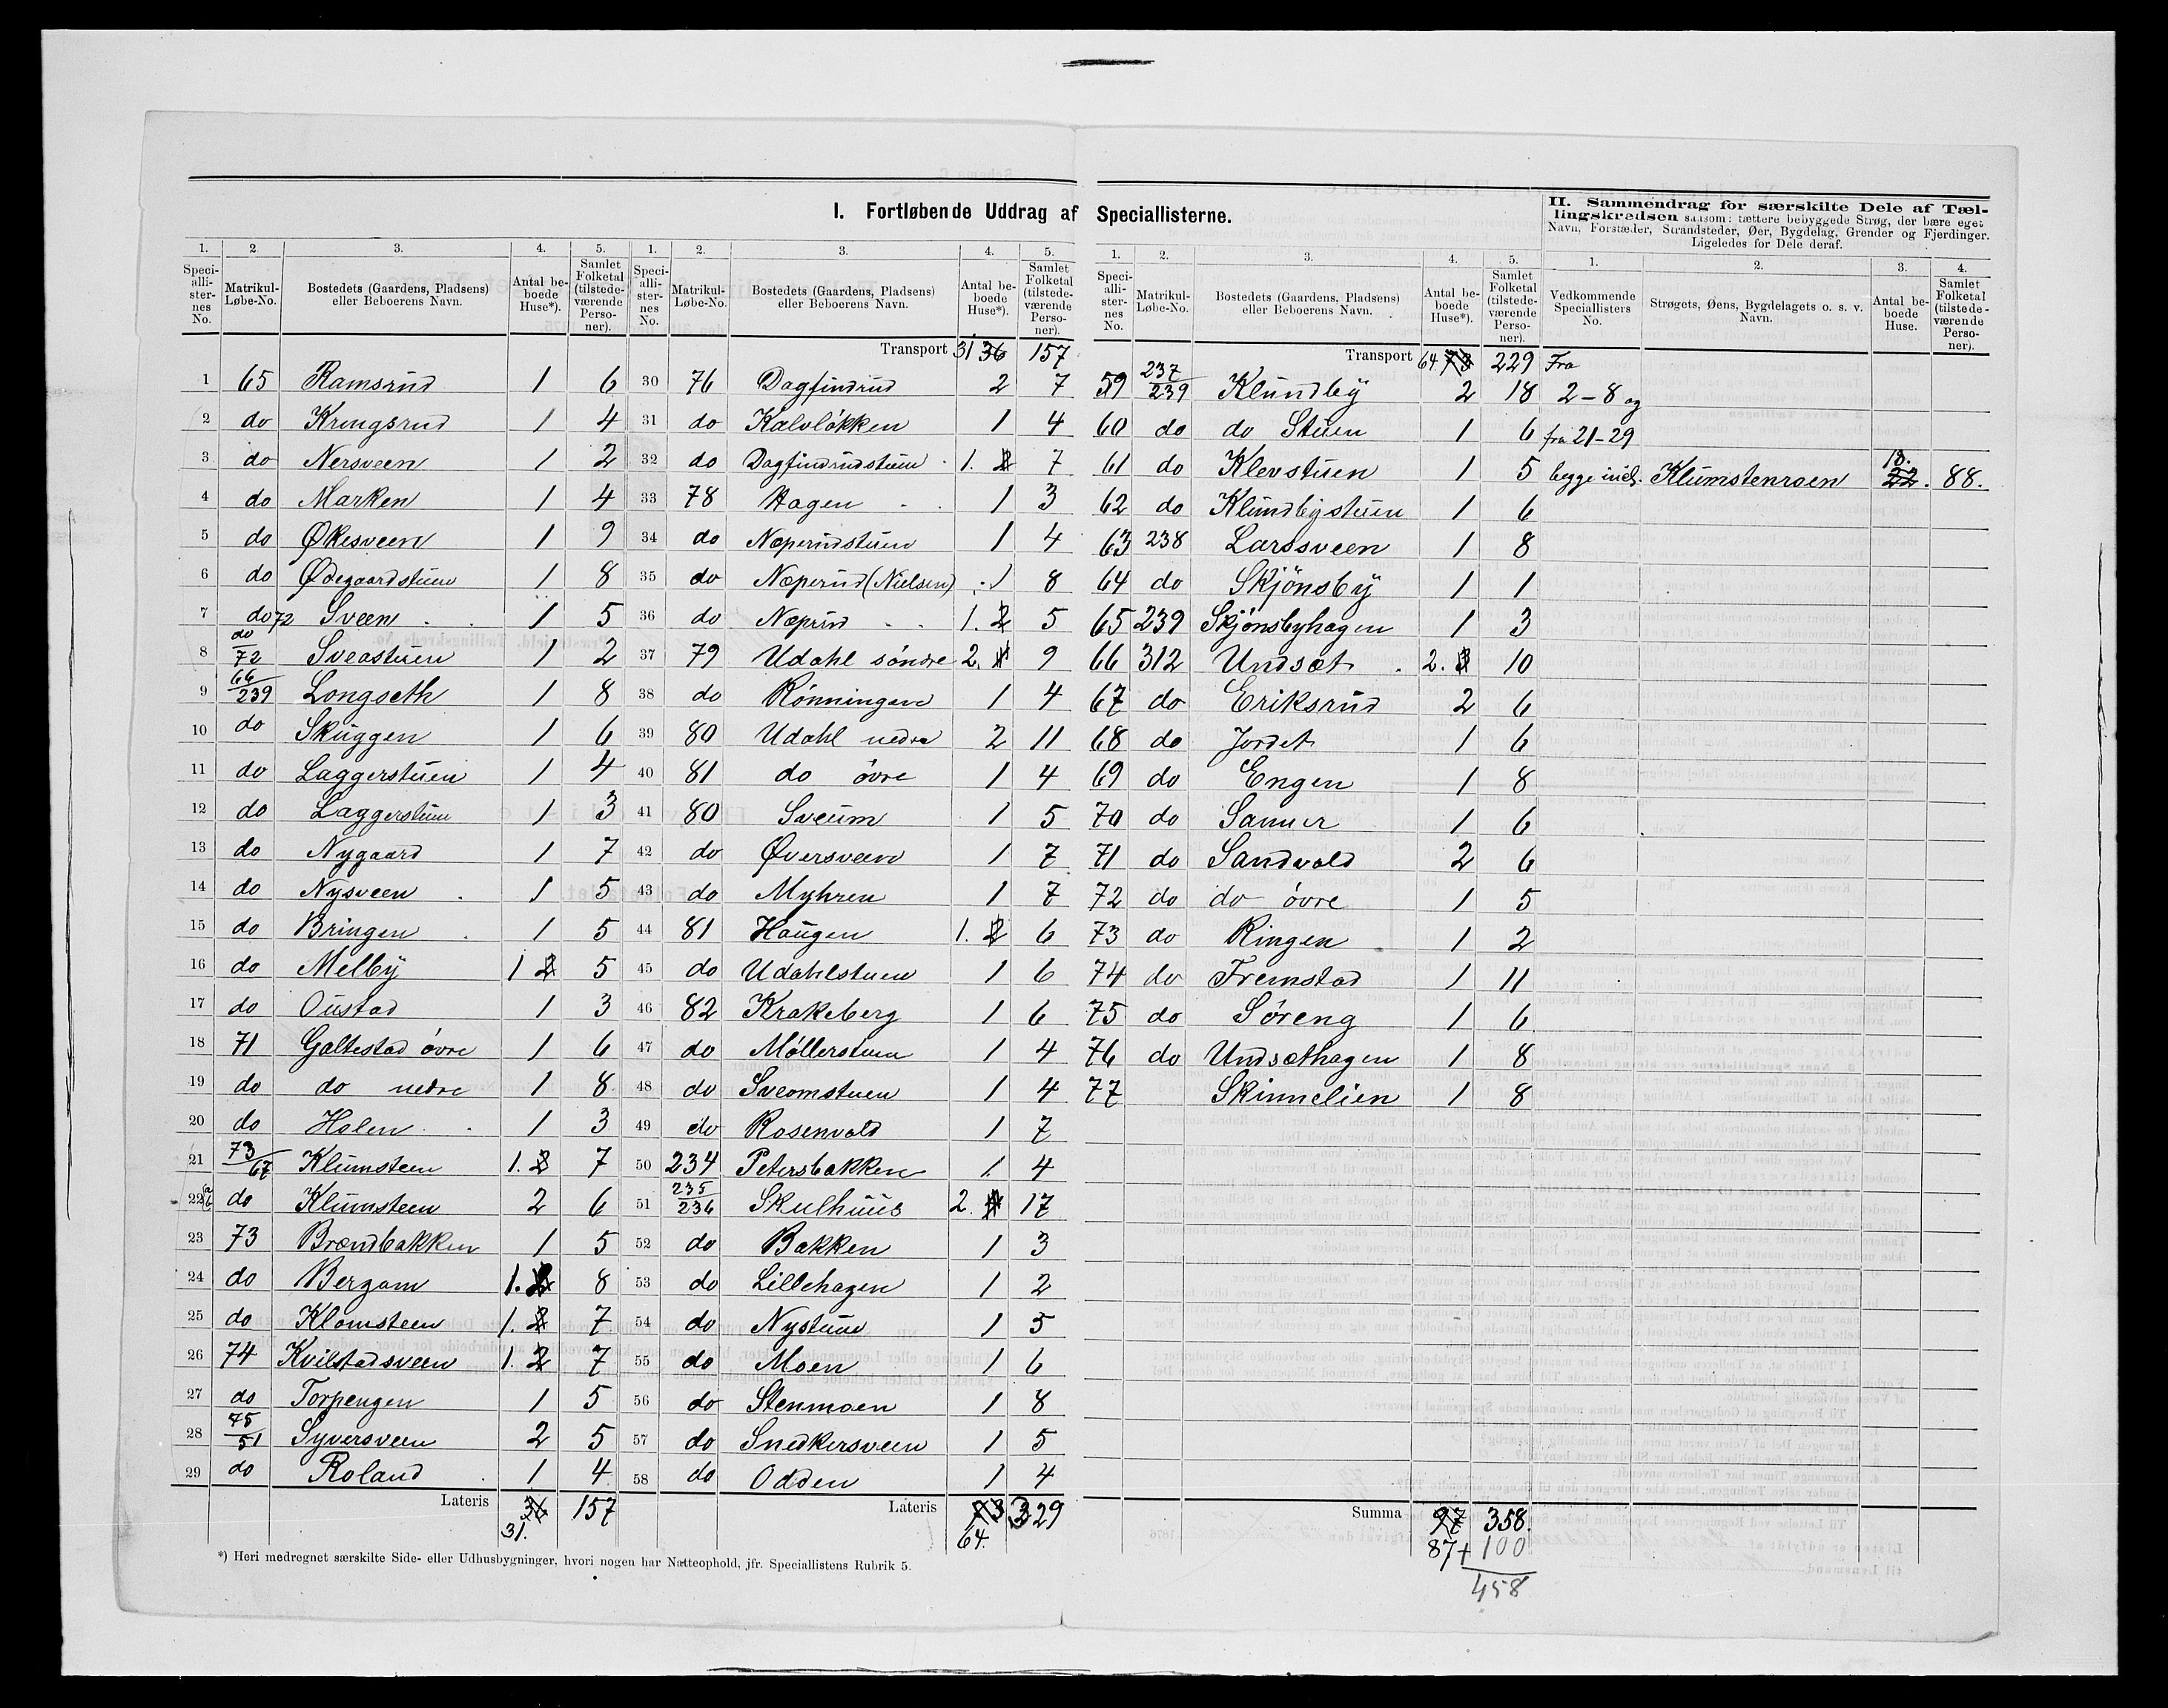 I. Fortløbende Uddrag af Speciallisterne.
II. Sammendrag for særskilte Dele af Tæl-
lingskredsen saasom: tættere bebyggede Strøg, der bære eget
Navn, Forstæder, Strandsteder, Øer, Bygdelag, Grender og Fjerdinger.
Ligeledes for Dele deraf.
1. 2 3. 4. 5.
Speci-alli-ster-nes No. Matrikul-Løbe-No. Bostedets (Gaardens, Pladsens) eller Beboerens Navn. Antal be-boede Huse*). Samlet Folketal (tilstede-værende Perso-ner).
1 65 Ramsrud 1 6
2 do Kringsrud 1 4
3 do Nersveen 1 2
4 do Marken 1 4
5 do Økesveen 1 9
6 do Ødegaardstuen 1 8
7 do 72 Sveen 1 5
8 do/72 Sveastuen 1 2
9 66/239 Longseth 1 8
10 do Skuggen 1 6
11 do Laggerstuen 1 4
12 do Laggerstuen 1 3
13 do Nygaard 1 7
14 do Nysveen 1 5
15 do Bringen 1 5
16 do Melby 1 2 5
17 do Oustad 1 3
18 71 Galtestad övre 1 6
19 do do nedre 1 8
20 do Holen 1 3
21 73/67 Klumsteen 1. 2 7
22 do Klumsteen 2 6
23 73 Brændbakken 1 5
24 do Bergom 1. 2 8
25 do Klomsteen 1. 2 7
26 74 Kvilstadsveen 1. 2 7
27 do Torpengen 1 5
28 75/51 Syversveen 2 5
29 do Roland 1 4
Lateris 36 157
31.
1. 2. 3. 4. 5.
Speci-alli-ster-nes No. Matrikul-Løbe-No. Bostedets (Gaardens, Pladsens) eller Beboerens Navn. Antal be-boede Huse*). Samlet Folketal (tilstede-værende Perso-ner).
Transport 31 36 157
30 76 Dagfindrud 2 7
31 do Kalvløkken 1 4
32 do Dagfindrudstuen 1. 2 7
33 78 Hagen 1 3
34 do Næperudstuen 1 4
35 do Næperud (Nielsen) 1 8
36 do Næprud 1. 2 5
37 79 Udahl söndre 2. 9
38 do Rønningen 1 4
39 80 Udahl nedre 2 11
40 81 do övre 1 4
41 80 Sveum 1 5
42 do Øversveen 1 7
43 do Myhren 1 7
44 81 Haugen 1. 2 6
45 do Udahlstuen 1 6
46 82 Krakeberg 1 6
47 do Møllerstuen 1 4
48 do Sveomstuen 1 4
49 do Rosenvold 1 7
50 234 Petersbakken 1 4
51 235/236 Skulhuus 2. 17
52 do Bakken 1 3
53 do Lillehagen 1 2
54 do Nystuen 1 5
55 do Moen 1 6
56 do Stenmoen 1 8
57 do Snedkersveen 1 5
58 do Odden 1 4
Lateris 73 329
64.
1. 2. 3. 4. 5.
Speci-alli-ster-nes No. Matrikul-Løbe-No. Bostedets (Gaardens, Pladsens) eller Beboerens Navn. Antal be-boede Huse*). Samlet Folketal (tilstede-værende Perso-ner).
Transport 64 73 229
59 237/239 Klundby 2 18
60 do do Stuen 1 6
61 do Klevstuen 1 5
62 do Klundbystuen 1 6
63 238 Larssveen 1 8
64 do Skjönsby 1 1
65 239 Skjönsbyhagen 1 3
66 312 Undsæt 2. 3 10
67 do Eriksrud 2 6
68 do Jordet 1 6
69 do Engen 1 8
70 do 1 6
71 do Sandvold 2 6
72 do do övre 1 5
73 do Ringen 1 2
74 do Fremstad 1 11
75 do Søreng 1 6
76 do Undsæthagen 1 8
77 Skinnelien 1 8
Summa 97 358.
87 + 100
458
1. 2. 3. 4.
Vedkommende Speciallisters No. Strøgets, Øens, Bygdelagets o. s. v. Navn. Antal be-boede Huse. Samlet Folketal (tilstede-værende Perso-ner).
Fra
2-8 og
fra 21-29
begge incl. Klumstenroen 18. 22. 88.
*) Heri medregnet særskilte Side- eller Udhusbygninger, hvori nogen har Natteophold, jfr. Speciallistens Rubrik 5.